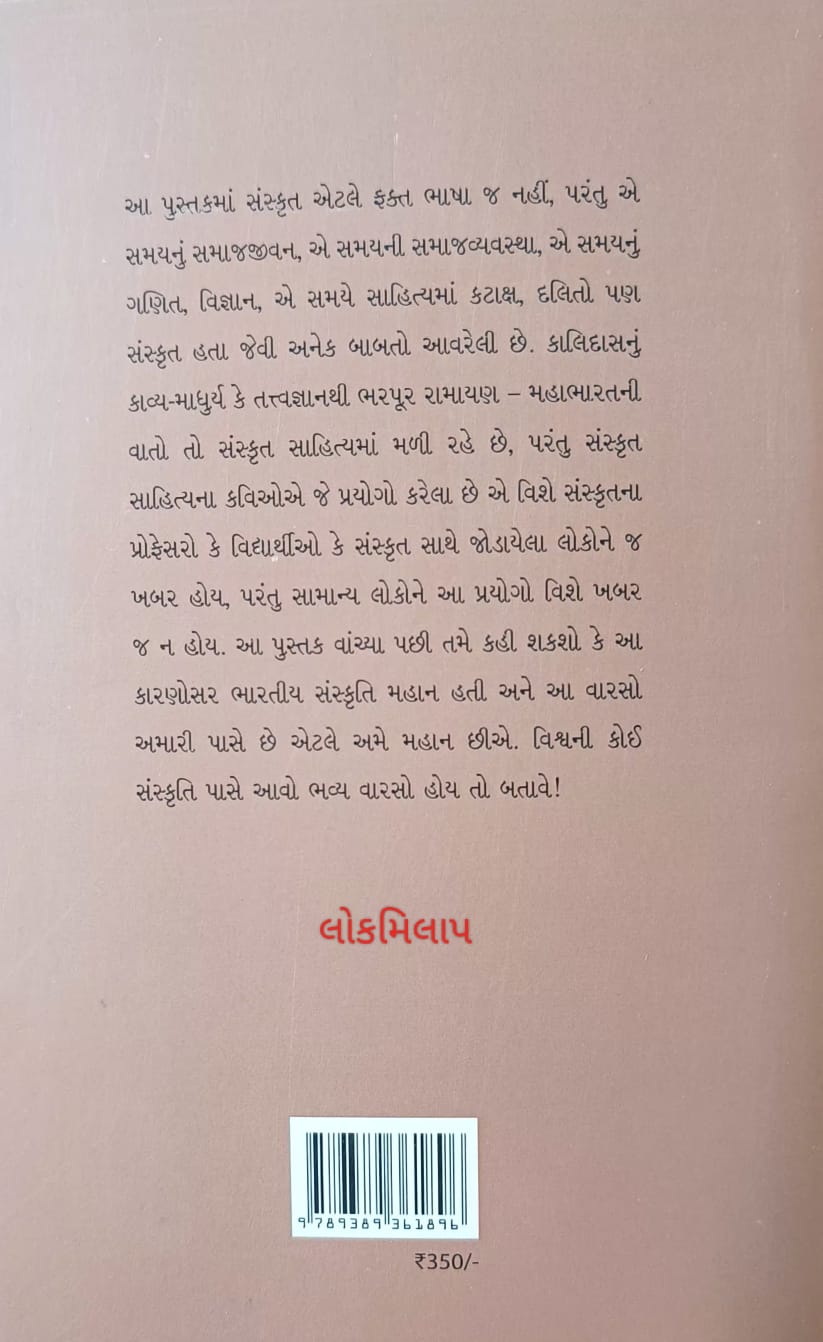 આ પુસ્તકમાં સંસ્કૃત એટલે ફક્ત ભાષા જ નહીં, પરંતુ એ
સમયનું સમાજજીવન, એ સમયની સમાજવ્યવસ્થા, એ સમયનું
ગણિત, વિજ્ઞાન, એ સમયે સાહિત્યમાં કટાક્ષ, દલિતો પણ
સંસ્કૃત હતા જેવી અનેક બાબતો આવરેલી છે. કાલિદાસનું
કાવ્ય-માધુર્ય કે તત્ત્વજ્ઞાનથી ભરપૂર રામાયણ – મહાભારતની
વાતો તો સંસ્કૃત સાહિત્યમાં મળી રહે છે, પરંતુ સંસ્કૃત
સાહિત્યના કવિઓએ જે પ્રયોગો કરેલા છે એ વિશે સંસ્કૃતના
પ્રોફેસરો કે વિદ્યાર્થીઓ કે સંસ્કૃત સાથે જોડાયેલા લોકોને જ
ખબર હોય, પરંતુ સામાન્ય લોકોને આ પ્રયોગો વિશે ખબર
જ ન હોય. આ પુસ્તક વાંચ્યા પછી તમે કહી શકશો કે આ
કારણોસર ભારતીય સંસ્કૃતિ મહાન હતી અને આ વારસો
અમારી પાસે છે એટલે અમે મહાન છીએ. વિશ્વની કોઈ
સંસ્કૃતિ પાસે આવો ભવ્ય વારસો હોય તો બતાવે!
લોકમિલાપ
9 789389 361896
₹350/-